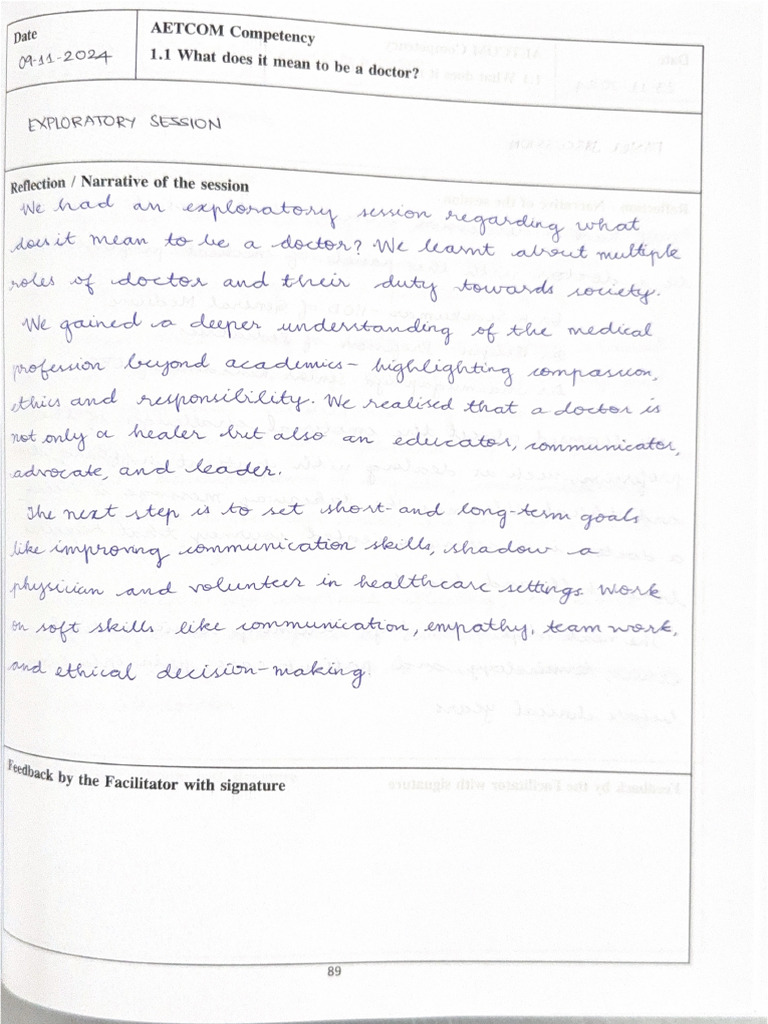 Date
09-11-2024
AETCOM Competency
1.1 What does it mean to be a doctor?
EXPLORATORY SESSION
Reflection / Narrative of the session
We had an exploratory session regarding what
does it mean to be a doctor? We learnt about multiple
roles of doctor and their duty towards society.
We gained a deeper understanding of the medical
profession beyond academics - highlighting compassion,
ethics and responsibility. We realised that a doctor is
not only a healer but also an educator, communicator,
advocate, and leader.
The next step is to set short- and long-term goals
like improving communication skills, shadow a
physician and volunteer in healthcare settings. Work
on soft skills like communication, empathy, team work,
and ethical decision-making.
Feedback by the Facilitator with signature
89